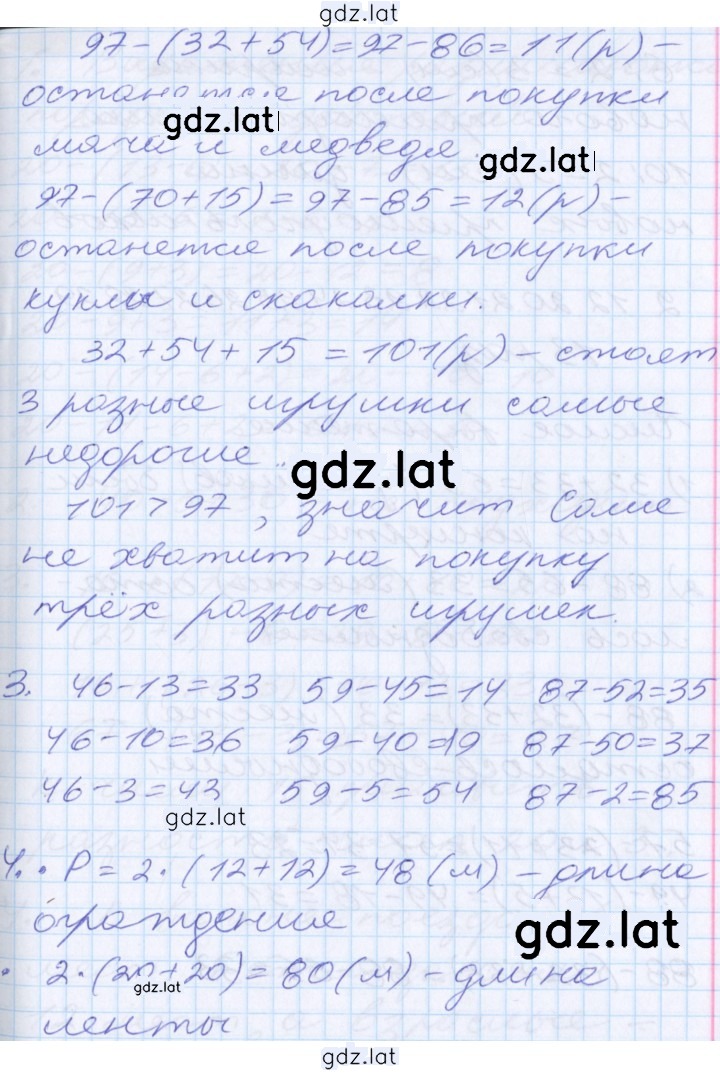 gdz.lat
97-(32+54)=97-86=11(р)-
останется после покупки
gdz.lat
мяча и медведя
gdz.lat
97-(70+15)=97-85=12(р)-
останется после покупки
куклы и скакалки.
32+54+15=101(р)-стоят
3 разные игрушки самые
недорогие
gdz.lat
101>97, значит Саше
не хватит на покупку
трёх разных игрушек.
3. 46-13=33 59-45=14 87-52=35
46-10=36 59-40=19 87-50=37
46-3=43 59-5=54 87-2=85
gdz.lat
4. • P=2·(12+12)=48(м)-длина
ограждения
gdz.lat
• 2·(20+20)=80(м)-длина
gdz.lat
ленты
gdz.lat